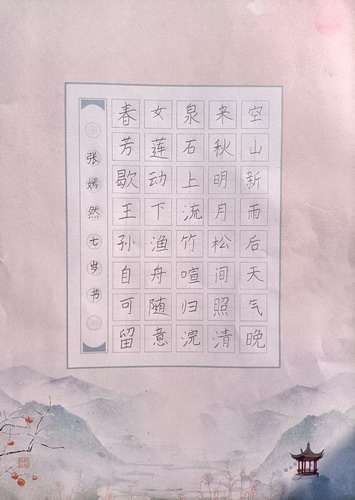 空山新雨后天气晚
来秋明月松间照清
泉石上流竹喧归浣
女莲动下渔舟随意
春芳歇王孙自可留
张嫣然七岁书